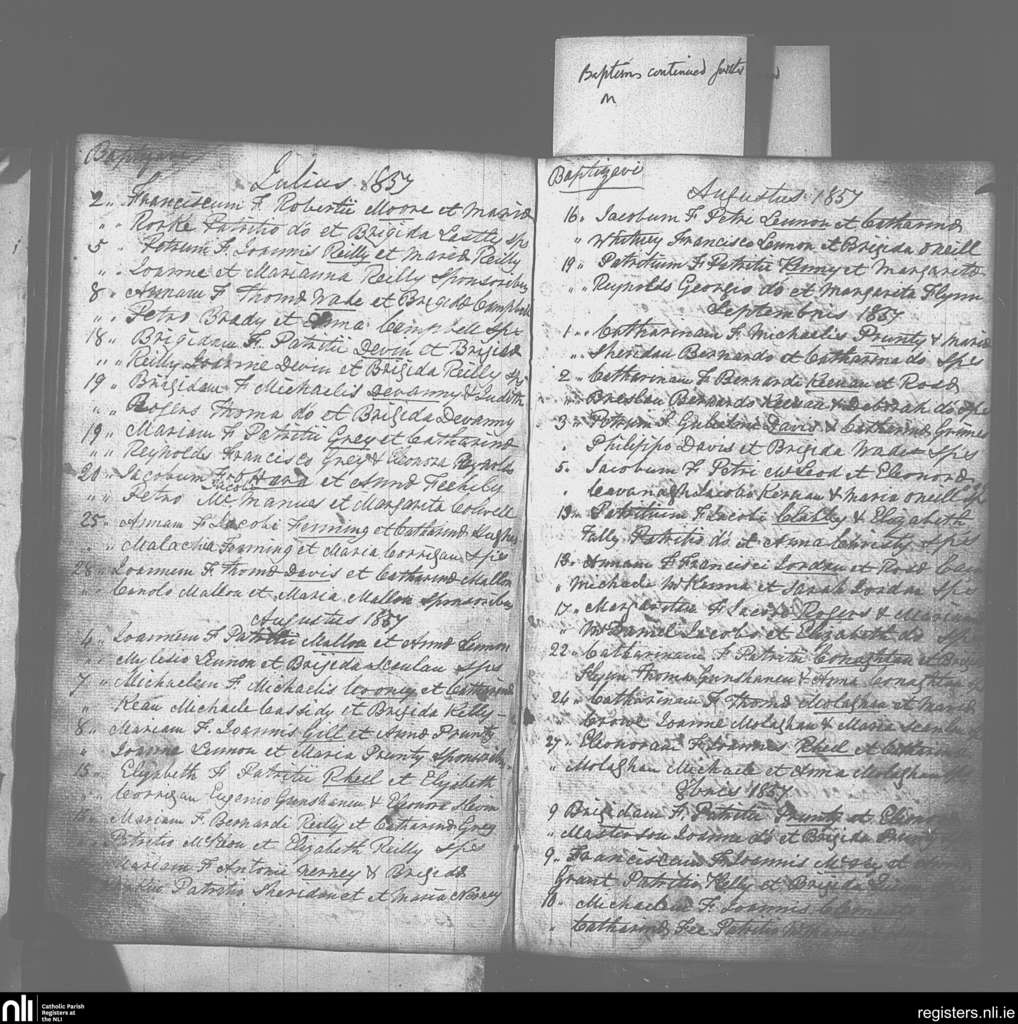 Baptisms continued further
on
Baptizavi
Julius 1857
2 „ Franciscum F. Robertii Moore et Maria
„ „ Rorke Patritio do et Brigida Lastly Sp
5 Petrum F. Joannis Reilly et Maria Reilly
„ „ Joanne et Marianna Reilly Sponsoribus
8 „ Annam F Thoma Wade et Brigida Campbell
„ „ Petro Brady et Anna Campbell Sps
18 „ Brigidam F. Patritii Devin et Brigida
„ „ Reilly Joanne Devin et Brigida Reilly Sp
19 „ Brigidam F Michaelis Devanny & Judith
„ „ Rogers Thoma do et Brigida Devanny
19 „ Mariam F Patritii Grey et Catharina
„ „ Reynolds Francisco Grey & Elenora Reynolds
20 „ Jacobum F Jacobi O'Hara et Anna Feehily
„ „ Petro McManus et Margarita Colwell
25 „ Annam F Jacobi Ferming et Catharina Hughes
„ „ Malachia Ferming et Maria Corrigan Sps
28 „ Joannem F Thoma Davis et Catharina Mallon
„ Carolo Mallon et Maria Mallon Sponsoribus
Augustus 1857
4 „ Joannem F Patritii Mallon et Anna Lennon
„ „ Mylesio Lennon et Brigida Scanlan Sps
7 „ Michaelem F. Michaelis Cooney et Catharina
Kean Michaele Cassidy et Brigida Kelly
8 „ Mariam F. Joannis Gill et Anna Prunty
„ Joanne Lennon et Maria Prunty Sponsoribus
15 „ Elizabeth F Patritii Rheil et Elizabeth
„ „ Corrigan Eugenio Gunshanen & Eleonora
„ Mariam F. Bernardi Reilly et Catharina Grey
Patritio McKeon et Elizabeth Reilly Sps
Mariam F Antonii Nerney & Brigida
Patritio Sheridan et Maria Nerney
Baptizavi
Augustus 1857
16 „ Jacobum F Petri Lennon et Catharina
„ Whitney Francisco Lennon et Brigida O'Neill
19 „ Patritium F Patritii Kenny et Margarita
„ „ Reynolds Georgio do et Margarita Flynn
Septembris 1857
1 „ Catharinam F. Michaelis Prunty & Maria
„ „ Sheridan Bernardo et Catharina do Sps
2 „ Catharinam F Bernardi Keenan et Rosa
„ Breslan Bernardo Keenan & Deborah do Sps
3 „ Petrum F Davis & Catharina Grimes
„ Philippo Davis et Brigida Wade Sps
5 „ Jacobum F Petri McLeod et Eleonora
„ Cavanagh Jacobo Kernan & Maria O'Neill Sp
13 „ Patritium F Jacobi & Elizabeth
Tally Patritio do et Anna Christy Sps
13 „ Annam F Francisci Jordan et Rosa
„ Michaele McKenna et Sarah Jordan Sps
17 „ Margaritam F Jacobi Rogers & Mariam
„ McDaniel Jacobo et Elizabeth do Sps
22 „ Catharinam F Patritii Conaghtan et Brigida
Flynn Thoma Gunshanen & Anna Conaghtan
24 „ Catharinam F Thoma Molaghan et Maria
„ Crowe Joanne Molaghan & Maria Scanlan
27 „ Eleonoram F Joannis Rheil et Catharina
„ Molaghan Michaele et Anna Molaghan Sps
8bris 1857
9 Brigidam F. Patritii Prunty et Eleonora
„ Masterson Joanne do et Brigida Prunty
9 „ Franciscum F Joannis et
Grant Patritio Kelly et Brigida
10 „ Michaelem F Joannis
„ Catharina Fee Patritio
nli
Catholic Parish
Registers at
the NLI
registers.nli.ie